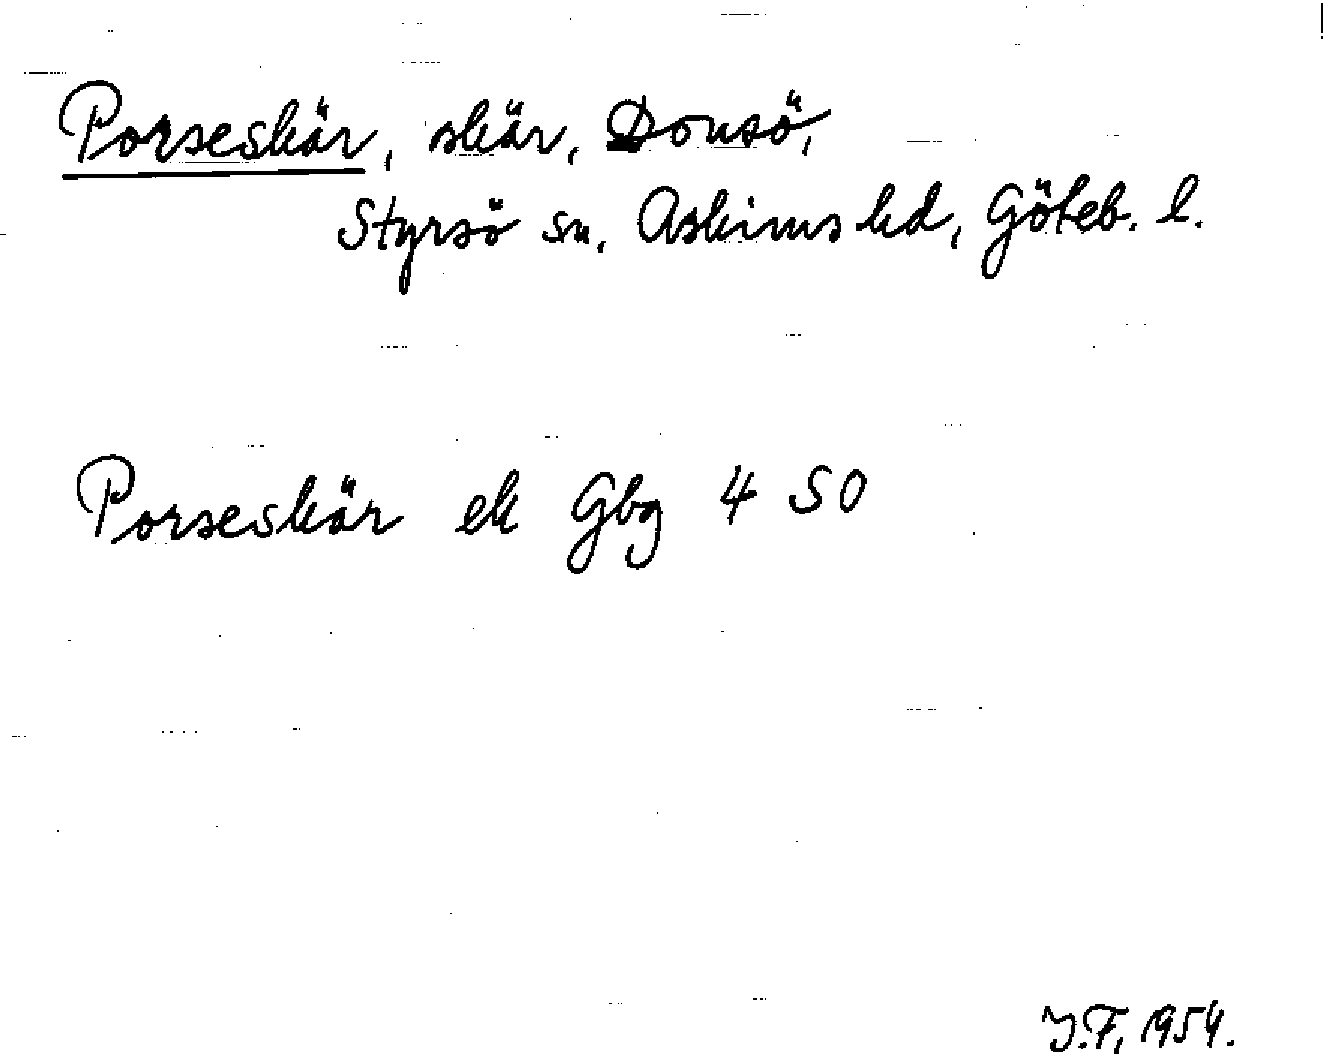 Porseskär, skär, Donsö,
Styrsö sn, Askims hd, Göteb. l.
Porseskär ek Gbg 4 SO
J.F, 1954.